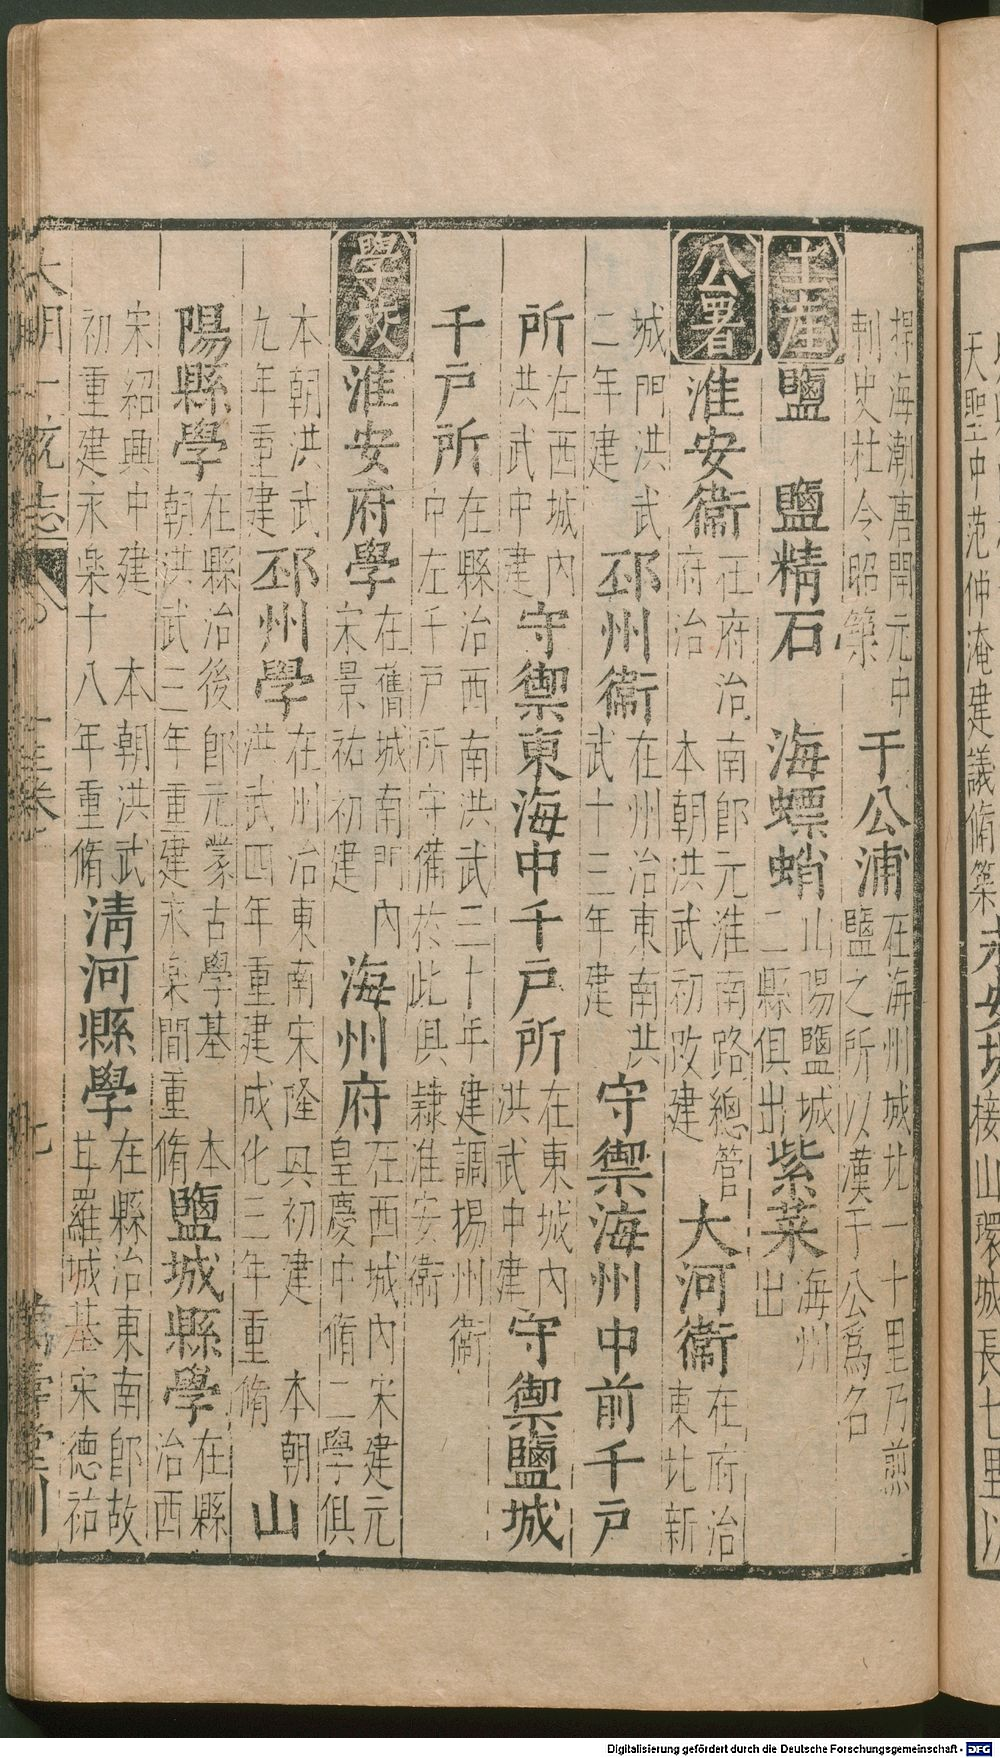 天聖中范仲淹建議脩築永安堤接山環城長七里以
捍海潮唐開元中刺史杜令昭築 于公浦 在海州城北一十里乃煎鹽之所以漢于公爲名
土産 鹽 鹽精石 海螵蛸 山陽鹽城二縣俱出 紫菜 海州出
公署 淮安衞 在府治南即元淮南路總管府治 本朝洪武初改建 大河衞 在府治東北新
城門洪武二年建 邳州衞 在州治東南洪武十三年建 守禦海州中前千戶
所 在西城內洪武中建 守禦東海中千戶所 在東城內洪武中建 守禦鹽城
千戶所 在縣治西南洪武三十年建調揚州衞中左千戶所守備於此俱隸淮安衞
學校 淮安府學 在舊城南門內宋景祐初建 海州府 在西城內宋建元皇慶中脩二學俱
本朝洪武九年重建 邳州學 在州治東南宋隆興初建 本朝洪武四年重建成化三年重脩 山
陽縣學 在縣治後即元蒙古學基 本朝洪武三年重建永樂間重脩 鹽城縣學 在縣治西
宋紹興中建 本朝洪武初重建永樂十八年重脩 淸河縣學 在縣治東南即故甘羅城基宋德祐
大明一統志
Digitalisierung gefördert durch die Deutsche Forschungsgemeinschaft - DFG